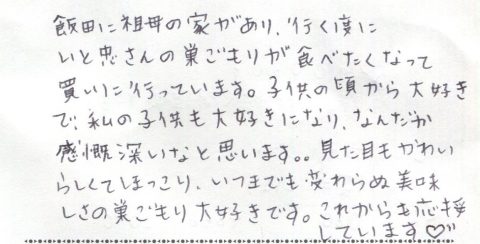 飯田に祖母の家があり、行く度に
いと忠さんの巣ごもりが食べたくなって
買いに行っています。子供の頃から大好き
で、私の子供も大好きになり、なんだか
感慨深いなと思います。。見た目もかわい
らしくてほっこり、いつまでも変わらぬ美味
しさの巣ごもり大好きです。これからも応援
しています♡